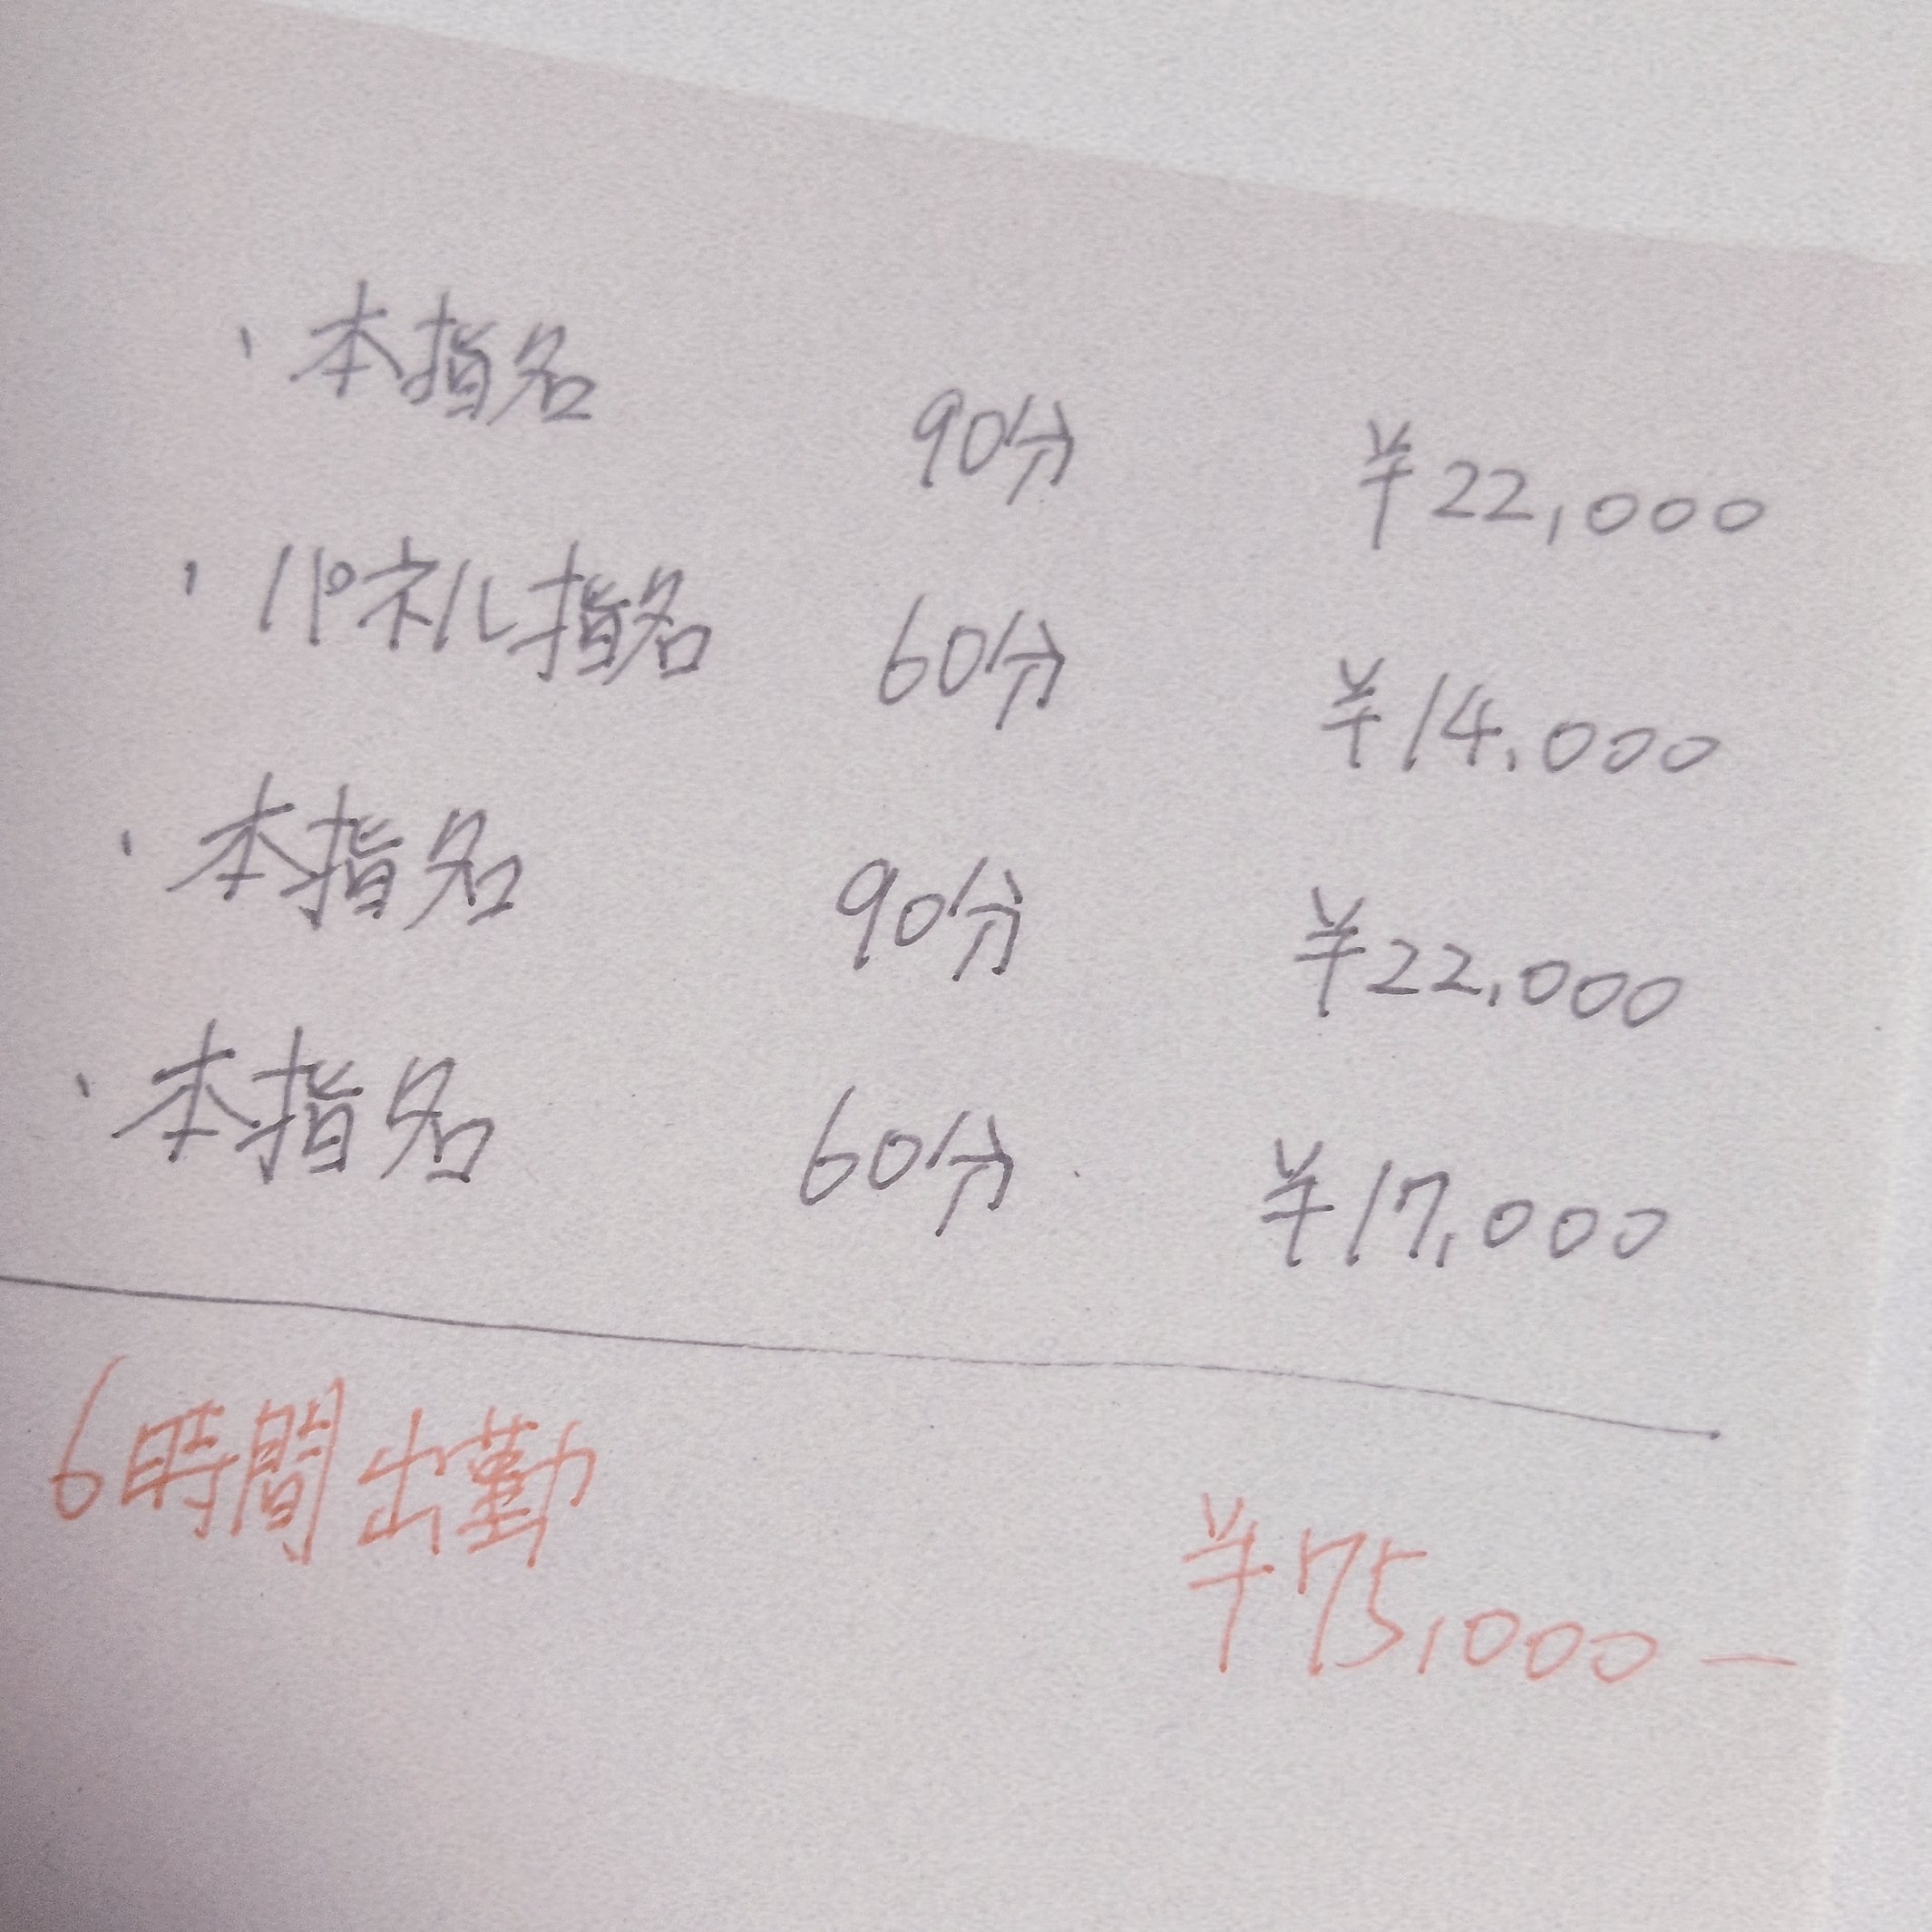 ・本指名 90分 ¥22,000
・パネル指名 60分 ¥14,000
・本指名 90分 ¥22,000
・本指名 60分 ¥17,000
6時間出勤 ¥75,000ー